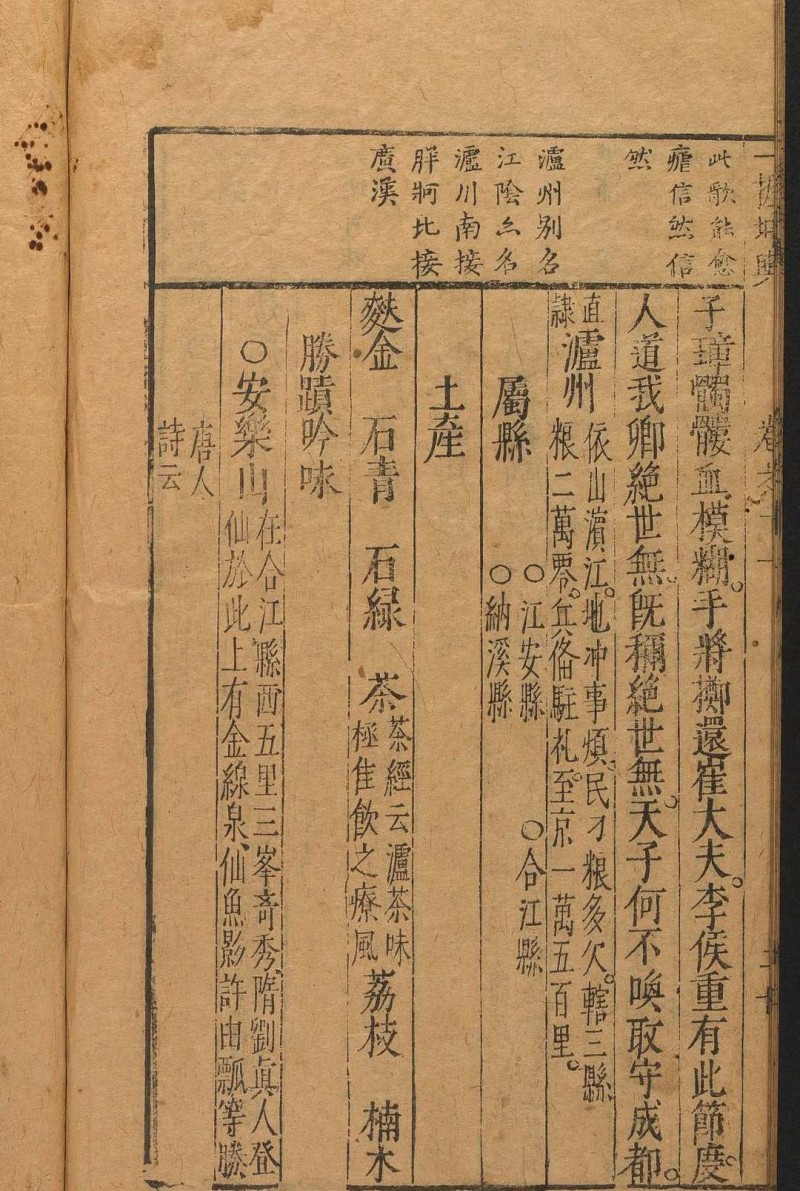 此歌能愈
瘧信然信
然
瀘州别名
江陰亦名
瀘川南接
牂牁比接
廣溪
子璋髑髏血模糊。手將擲還崔大夫。李侯重有此節度。
人道我卿絕世無。既稱絕世無。天子何不喚取守成都。
直隷瀘州
依山濵江。地冲事煩。民刁粮多欠。轄三縣
粮二萬零。兵俻駐札。至京一萬五百里。
屬縣
○江安縣 ○合江縣
○納溪縣
土產
麩金 石青 石緑 茶
茶經云瀘茶味
極佳飲之療風
荔枝 楠木
勝蹟吟味
○安樂山
在合江縣西五里三峯竒秀、隋劉眞人登
仙於此上有金線泉、仙魚影許由瓢等勝
唐人
詩云